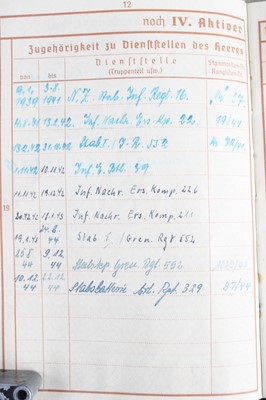 12
noch IV. Aktiver
Zugehörigkeit zu Dienststellen des Heeres
von bis Dienststelle (Truppenteil usw.) Stammrollen Nr. Ranglisten Nr.
1939 1941 N.Z. Stab Inf. Regt. 16. 37
13.2.42 Inf. Nachr. Ers. Kp. 22 19/41
Stab I / J.R. 552
1.11.42 10.11.42 Inf. E. Btl. 39
11.11.42 19.12.42 Inf. Nachr. Ers. Komp. 226
20.12.42 18.1.43 Inf. Nachr. Ers. Komp. 211
19.1.43 24.6.44 Stab I / Gren. Rgt. 552
25.6.44 9.12.44 Stabskp Gren Rgt. 552
10.12.44 22.12.44 Stabsbatterie Art. Rgt. 329 37/44
19